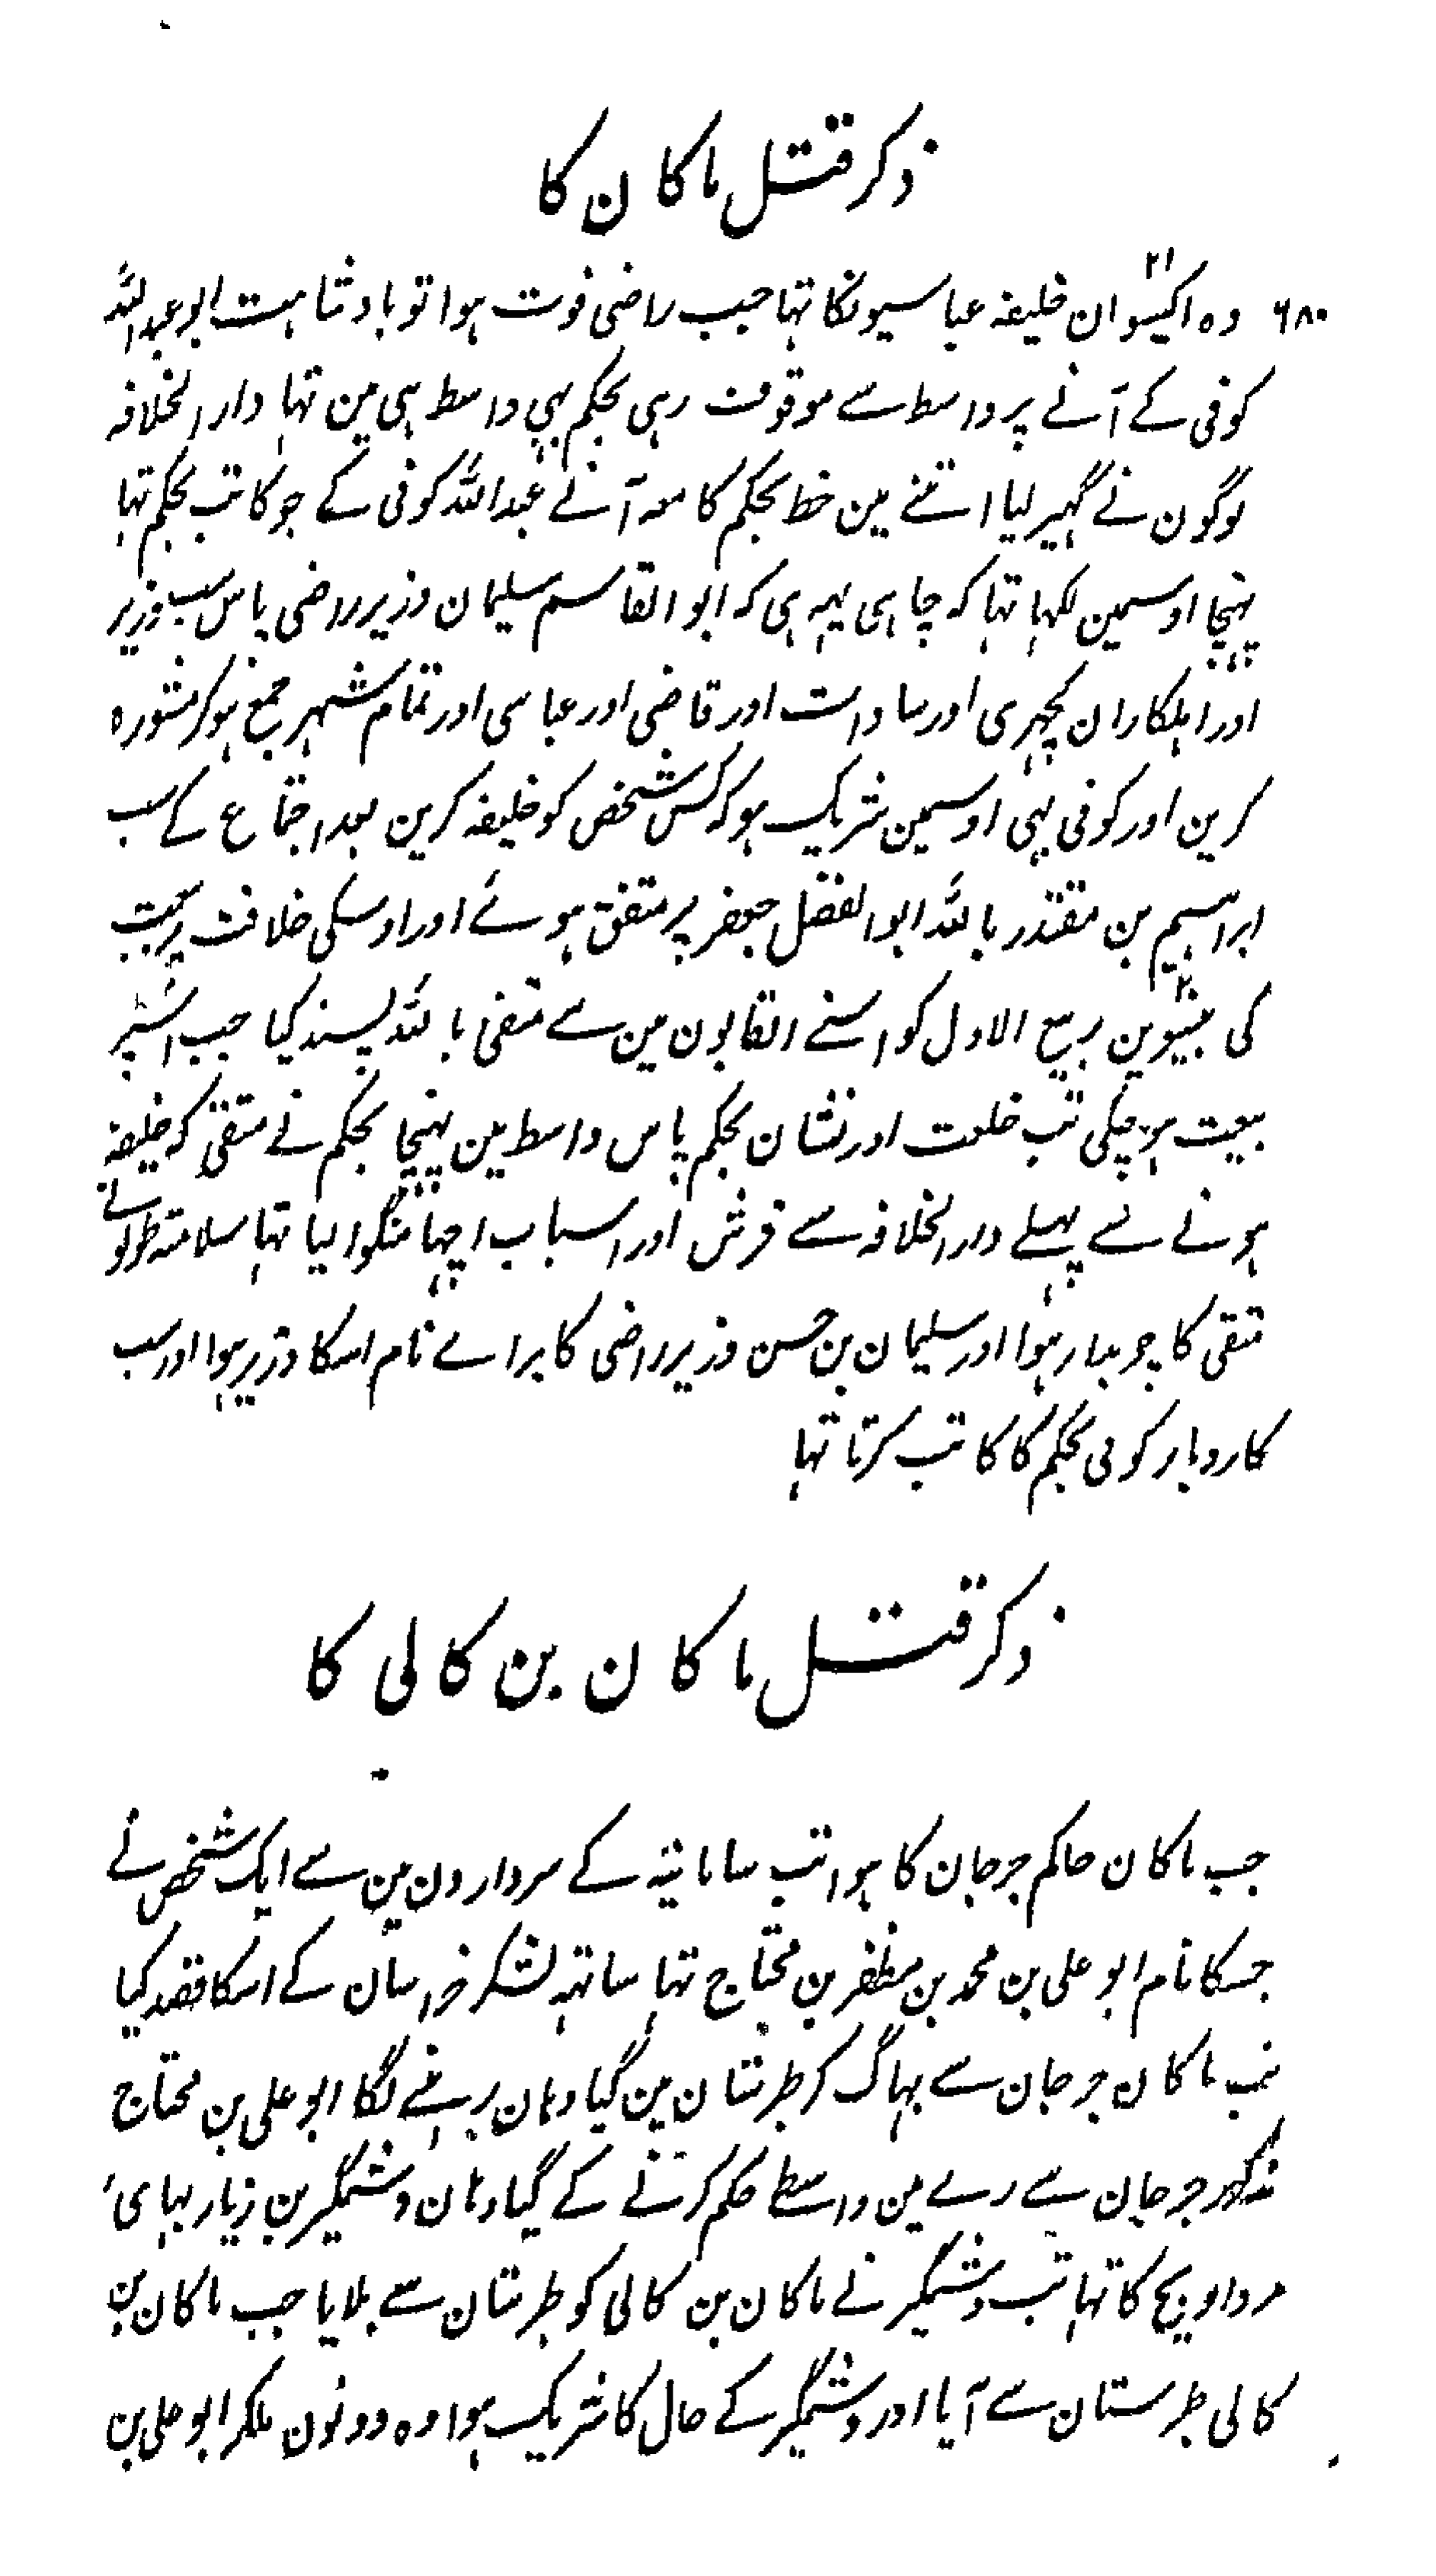 ذکر قتل ماکان کا
۶۸۰ وہ اکیسواں ۲۱ خلیفہ عباسیونکا تہا جب راضی فوت ہوا تو بادشاہت ابو عبداللہ
کوفی کے آنے پر واسط سے موقوف رہی بجکم بہی واسط ہی مین تہا دار الخلافہ
لوگون نے گہیر لیا اتنے مین خط بجکم کا معہ آنے عبداللہ کوفی کے جو کاتب بجکم تہا
پہنچا اوسمین لکہا تہا کہ چاہی یہہ ہی کہ ابو القاسم سلیمان وزیر راضی پاس سب وزیر
اور اہلکاران کچہری اور سادات اور قاضی اور عباسی اور تمام شہر جمع ہوکر مشورہ
کرین اور کوفی بہی اوسمین شریک ہو کہ کس شخص کو خلیفہ کرین بعد اجتماع کے سب
ابراہیم بن مقتدر باللہ ابو الفضل جعفر پر متفق ہوئے اور اوسکی خلافت پر بیعت
کی بیسوین ۲۰ ربیع الاول کو اسنے القابون مین سے متقی باللہ پسند کیا جب اسپر
بیعت ہو چکی تب خلعت اور نشان بجکم پاس واسط مین پہنچا بجکم نے متقی کو خلیفہ
ہونے سے پہلے دار الخلافہ سے فرش اور اسباب اچہا منگوا لیا تہا سلامتہ طولونے
متقی کا چوبدار ہوا اور سلیمان بن حسن وزیر راضی کا براے نام اسکا وزیر ہوا اور سب
کاروبار کوفی بجکم کا کاتب کرتا تہا
ذکر قتل ماکان بن کالی کا
جب ماکان حاکم جرجان کا ہوا تب سامانیہ کے سردارون مین سے ایک شخص نے
جسکا نام ابو علی بن محمد بن مظفر بن محتاج تہا ساتہہ لشکر خراسان کے اسکا قصد کیا
تب ماکان جرجان سے بہاگ کر طبرستان مین گیا وہان رہنے لگا ابو علی بن محتاج
مذکور جرجان سے رے مین واسطے حکم کرنے کے گیا وہان وشمگیر بن زیار بہائی
مرداویج کا تہا تب وشمگیر نے ماکان بن کالی کو طبرستان سے بلایا جب ماکان بن
کالی طبرستان سے آیا اور وشمگیر کے حال کا شریک ہوا وہ دونون ملکر ابو علی بن